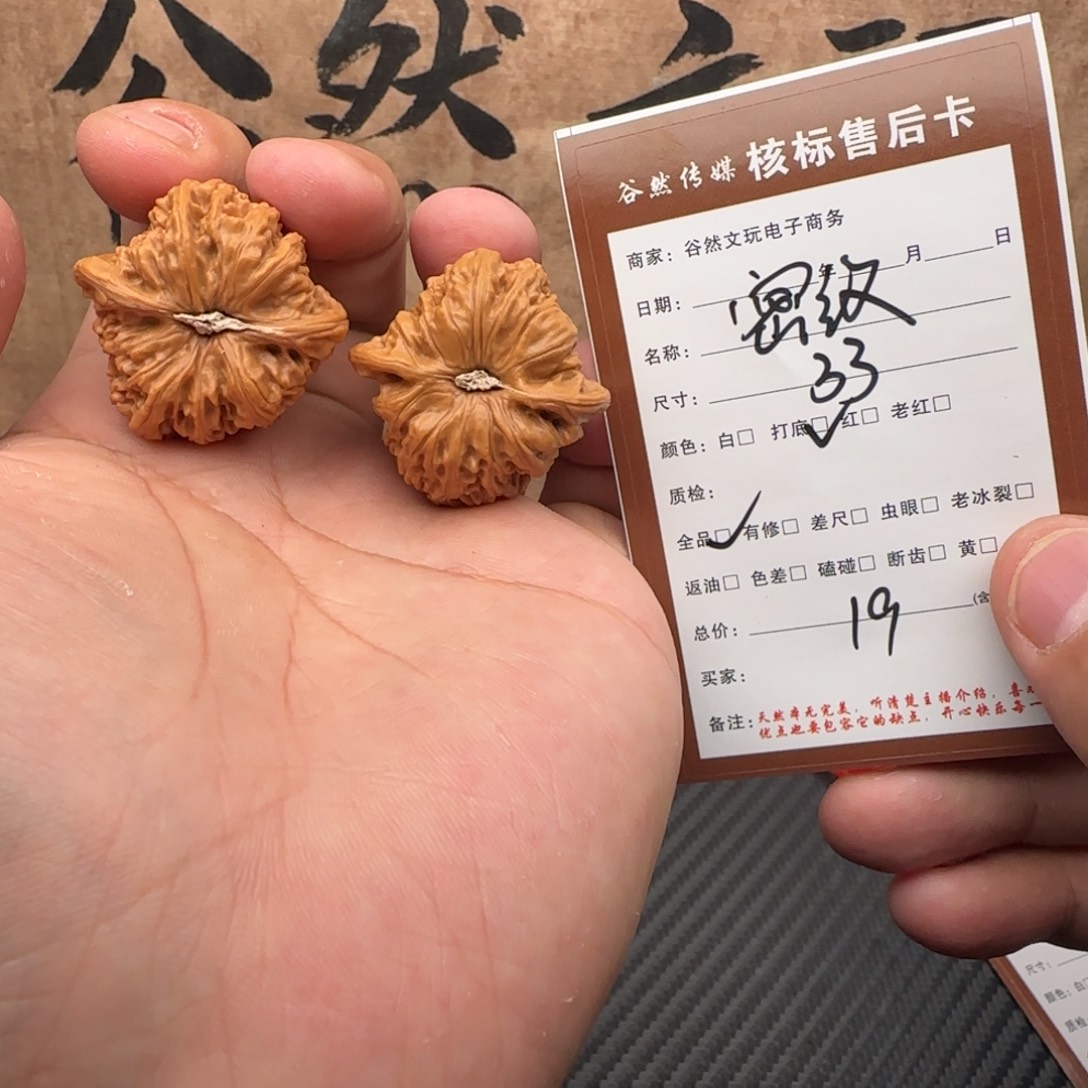 谷然文玩
谷然传媒 核标售后卡
商家：谷然文玩电子商务
日期： 年 月 日
名称： 密纹
尺寸： 33
颜色：白□ 打底□ 红□ 老红□
质检：
全品□ 有修□ 差尺□ 虫眼□ 老冰裂□
返油□ 色差□ 磕碰□ 断齿□ 黄□
总价： 19 (含
买家：
备注：天然本无完美，听清楚主播介绍，喜
优点也要包容它的缺点，开心快乐每一
尺寸：
颜色：白
质检